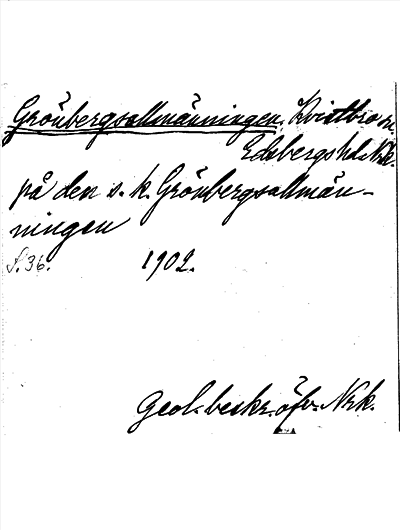 Grönbergsallmänningen, Kvistbro sn.
Edsbergs hd. Nke.
på den s. k. Grönbergsallmän-
ningen
S. 36. 1902.
Geol. beskr. öfv. Nrk.